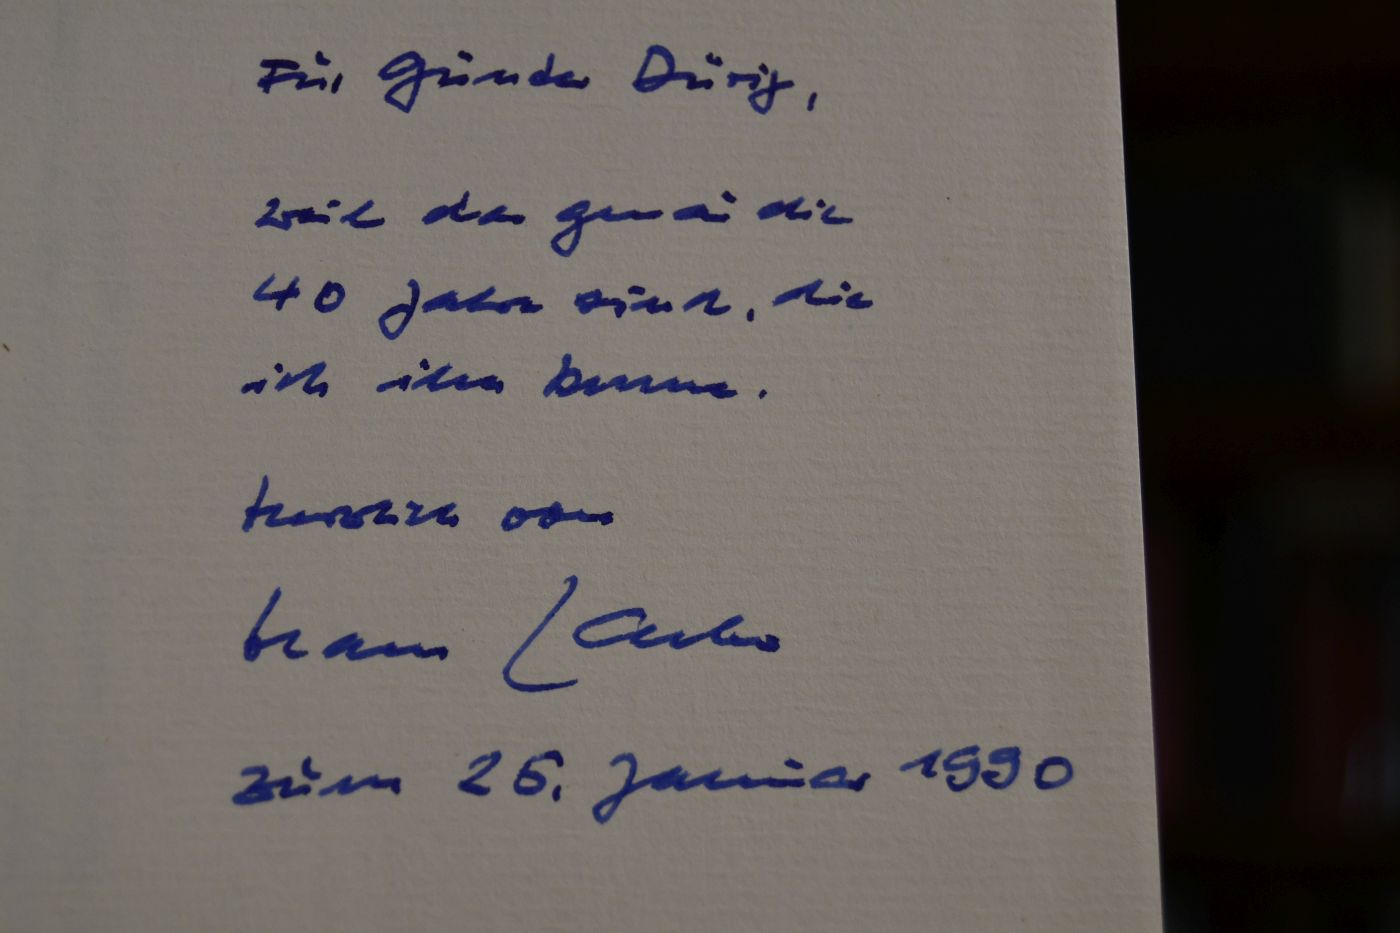 Für Günter Dürig,
weil das genau die
40 Jahre sind, die
ich ihn kenne.
herzlich von
zum 26. Januar 1990